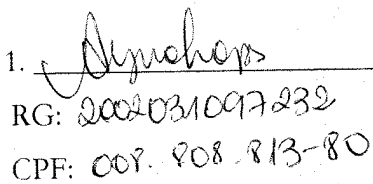 1.
RG: 2002031097232
CPF: 008.808.813-80